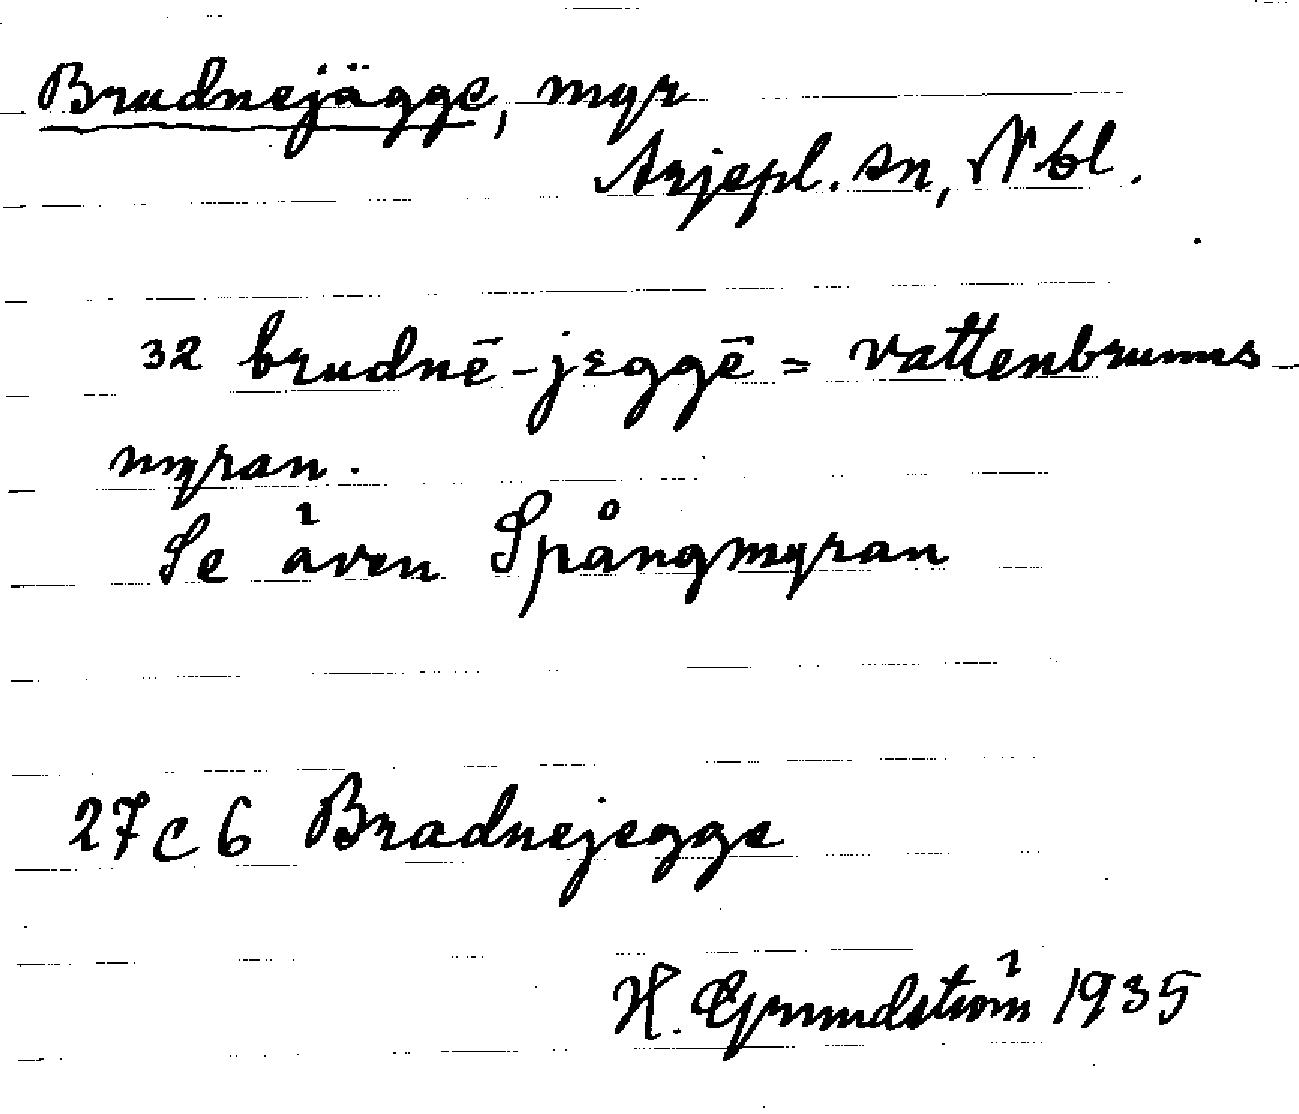 Brudnejägge, myr
Arjepl. sn, Nbl.
32 brudnē-jεggē = vattenbrunns-
myran.
Se även Spångmyran
27 C 6 Bradnejegge
H. Grundström 1935